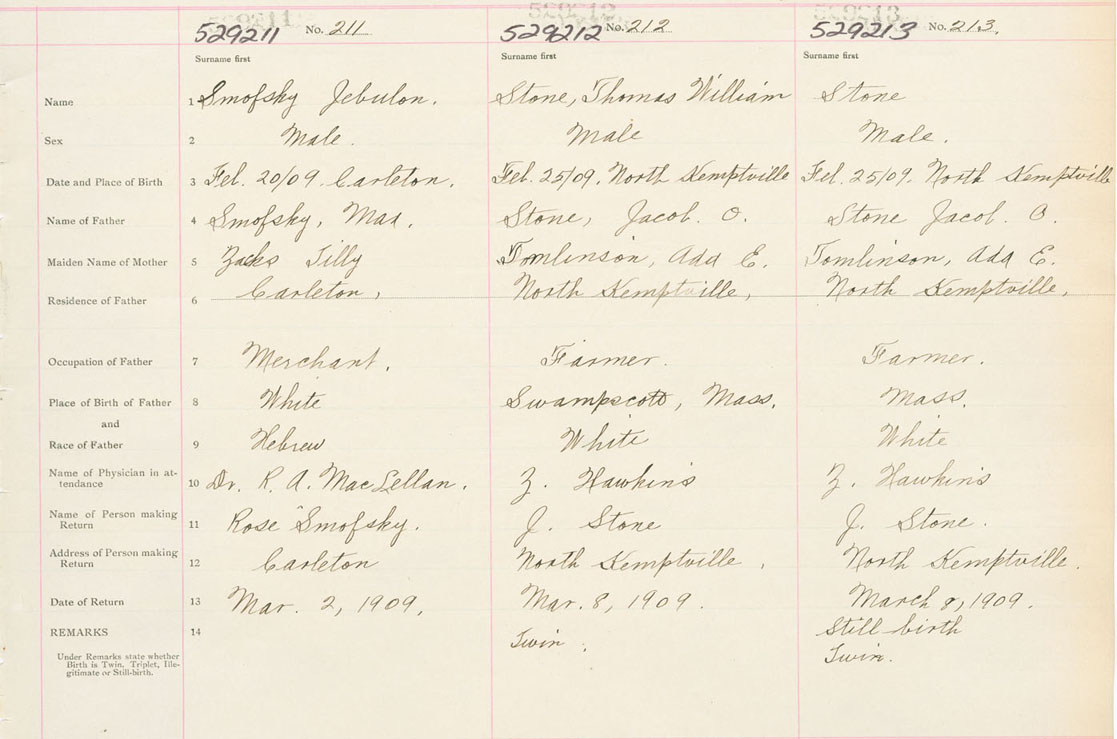 529211 No. 211 529212 No. 212 529213 No. 213.
Surname first Surname first Surname first
Name 1 Smofsky Jebulon. Stone, Thomas William Stone
Sex 2 Male. Male Male.
Date and Place of Birth 3 Feb. 20/09. Carleton. Feb. 25/09. North Kemptville Feb. 25/09. North Kemptville
Name of Father 4 Smofsky, Max. Stone, Jacob. O. Stone Jacob. O.
Maiden Name of Mother 5 Zacks Tilly Tomlinson, Ada E. Tomlinson, Ada E.
Residence of Father 6 Carleton, North Kemptville, North Kemptville,
Occupation of Father 7 Merchant. Farmer. Farmer.
Place of Birth of Father 8 White Swampscott, Mass. Mass.
and
Race of Father 9 Hebrew White White
Name of Physician in at-
tendance 10 Dr. R. A. MacLellan. Z. Hawkins Z. Hawkins
Name of Person making
Return 11 Rose Smofsky. J. Stone J. Stone.
Address of Person making
Return 12 Carleton North Kemptville, North Kemptville.
Date of Return 13 Mar. 2, 1909, Mar. 8, 1909. March 8, 1909.
REMARKS 14 Twin. Still birth
Twin.
Under Remarks state whether
Birth is Twin, Triplet, Ille-
gitimate or Still-birth.